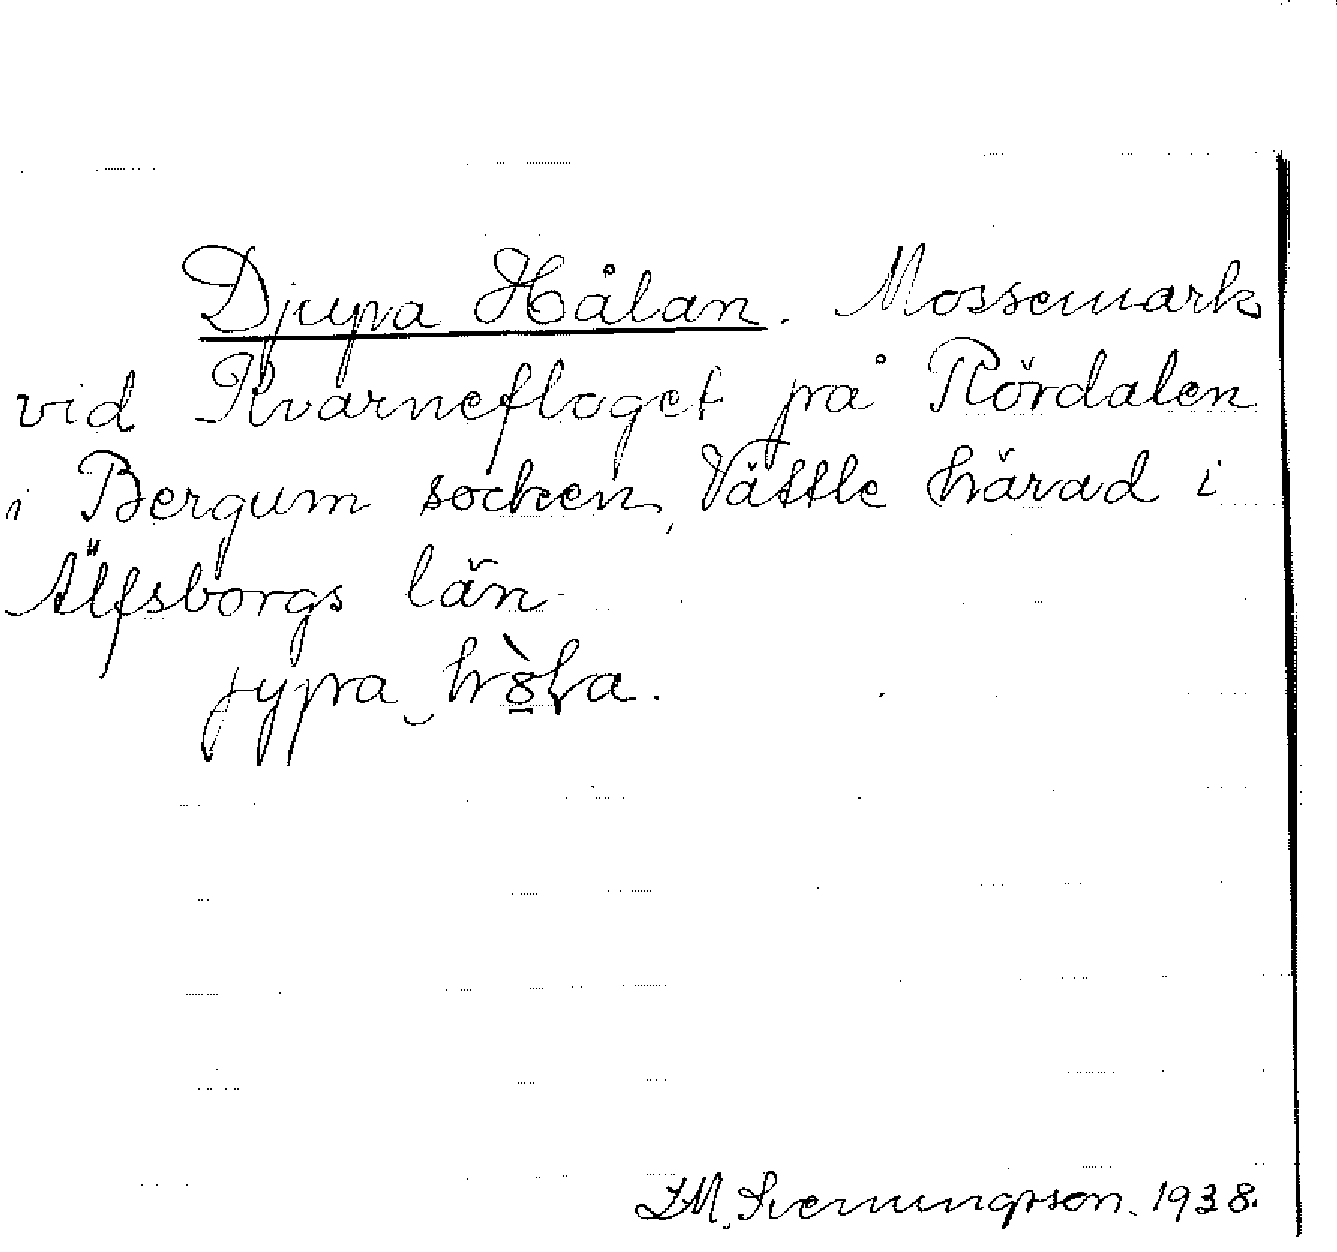 Djupa Hålan. Mossemark
vid Kvarnefloget på Rördalen
i Bergum socken, Vättle härad i
Älfsborgs län
jypa
I.M. Svenungsson. 1938.